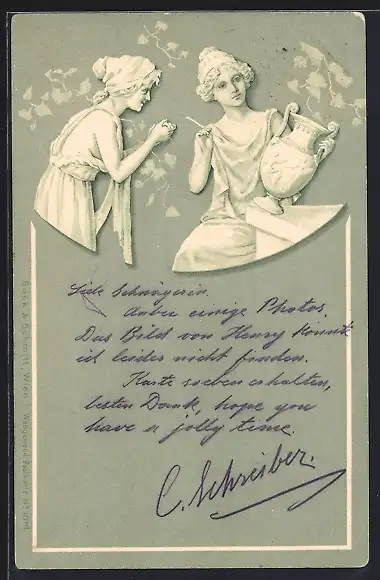 Liebe Schwägerin.
anbei einige Photos.
Das Bild von Henry konnte
ich leider nicht finden.
Karte soeben erhalten,
besten Dank, hope you
have a jolly time.
C. Schreiber.
Back & Schmitt, Wien. Wedgwood Postkarte No